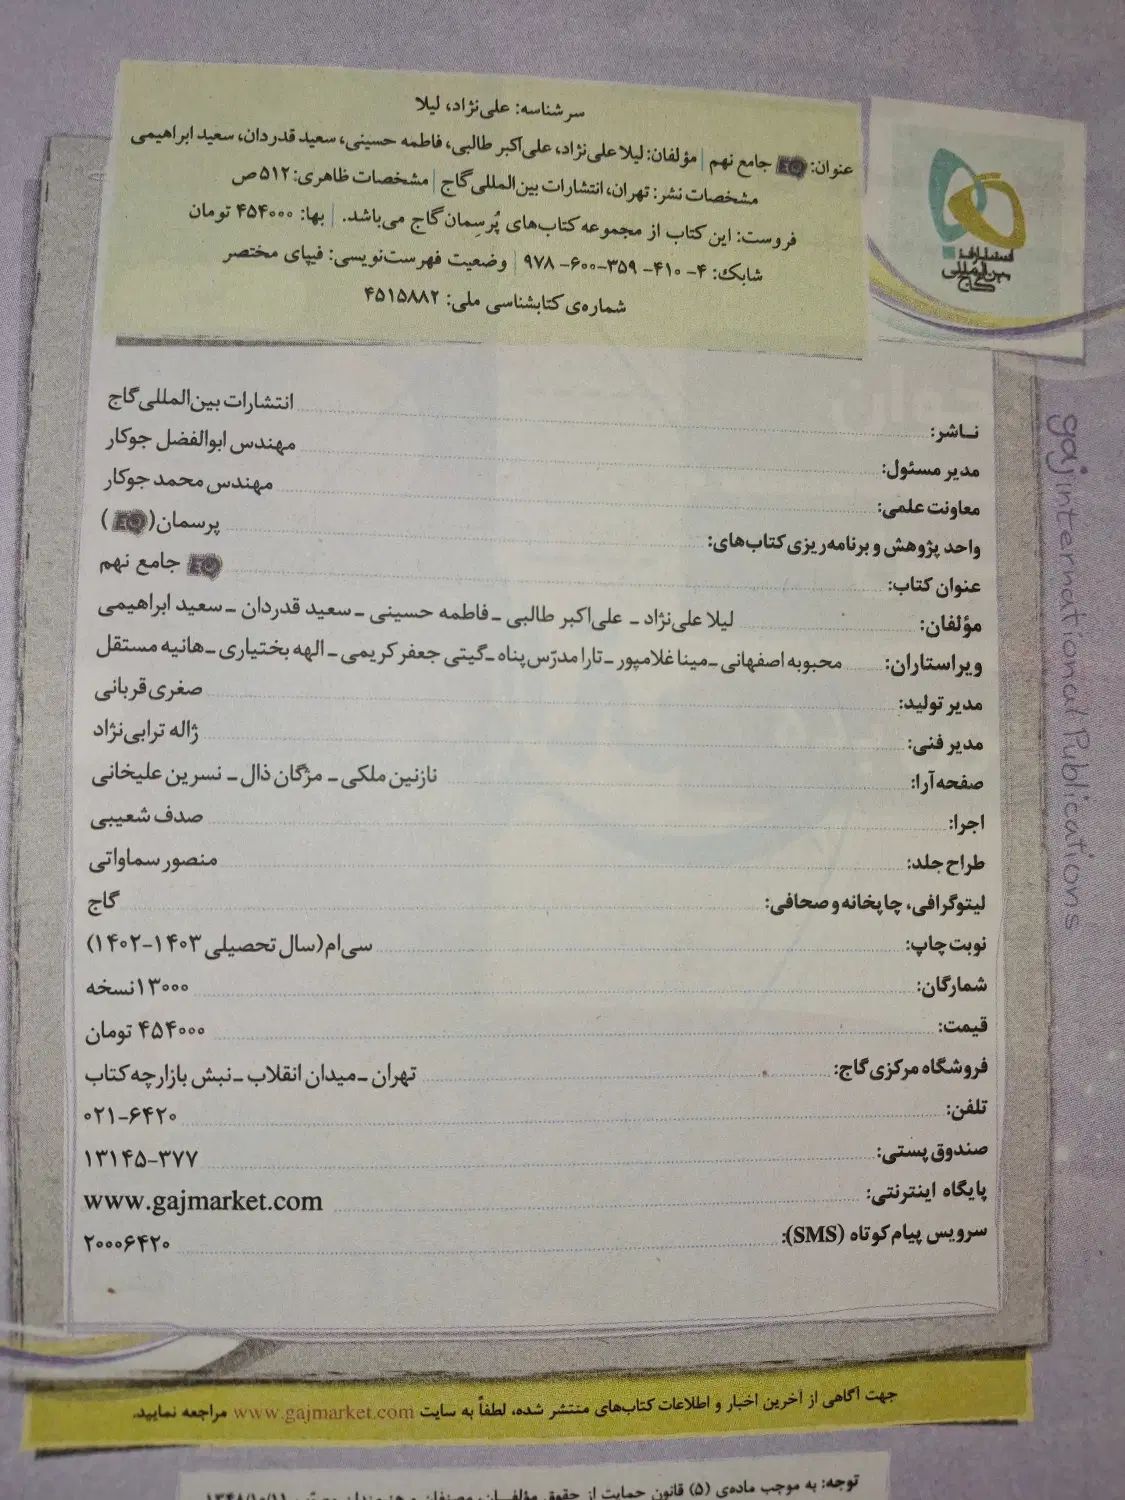 سرشناسه: علی‌نژاد، لیلا
عنوان: EQ جامع نهم | مؤلفان: لیلا علی‌نژاد، علی‌اکبر طالبی، فاطمه حسینی، سعید قدردان، سعید ابراهیمی
مشخصات نشر: تهران، انتشارات بین‌المللی گاج | مشخصات ظاهری: ۵۱۲ ص
فروست: این کتاب از مجموعه کتاب‌های پُرسِمان گاج می‌باشد. | بها: ۴۵۴۰۰۰ تومان
شابک: ۴- ۴۱۰- ۳۵۹-۶۰۰- ۹۷۸ | وضعیت فهرست‌نویسی: فیپای مختصر
شماره‌ی کتابشناسی ملی: ۴۵۱۵۸۸۲
انتشارات
بین‌المللی
گاج
ناشر: انتشارات بین‌المللی گاج
مدیر مسئول: مهندس ابوالفضل جوکار
معاونت علمی: مهندس محمد جوکار
واحد پژوهش و برنامه‌ریزی کتاب‌های: پرسمان (EQ)
عنوان کتاب: EQ جامع نهم
مؤلفان: لیلا علی‌نژاد ـ علی‌اکبر طالبی ـ فاطمه حسینی ـ سعید قدردان ـ سعید ابراهیمی
ویراستاران: محبوبه اصفهانی ـ مینا غلامپور ـ تارا مدرّس‌پناه ـ گیتی جعفر کریمی ـ الهه بختیاری ـ هانیه مستقل
مدیر تولید: صغری قربانی
مدیر فنی: ژاله ترابی‌نژاد
صفحه‌آرا: نازنین ملکی ـ مژگان ذال ـ نسرین علیخانی
اجرا: صدف شعیبی
طراح جلد: منصور سماواتی
لیتوگرافی، چاپخانه و صحافی: گاج
نوبت چاپ: سی‌ام (سال تحصیلی ۱۴۰۳-۱۴۰۲)
شمارگان: ۱۳۰۰۰ نسخه
قیمت: ۴۵۴۰۰۰ تومان
فروشگاه مرکزی گاج: تهران ـ میدان انقلاب ـ نبش بازارچه کتاب
تلفن: ۰۲۱-۶۴۲۰
صندوق پستی: ۱۳۱۴۵-۳۷۷
پایگاه اینترنتی: www.gajmarket.com
سرویس پیام کوتاه (SMS): ۲۰۰۰۶۴۲۰
gaj international Publications
جهت آگاهی از آخرین اخبار و اطلاعات کتاب‌های منتشر شده، لطفاً به سایت www.gajmarket.com مراجعه نمایید.
توجه: به موجب ماده‌ی (۵) قانون حمایت از حقوق مؤلفان، مصنفان و هنرمندان مصوّب ۱۳۴۸/۱۰/۱۱